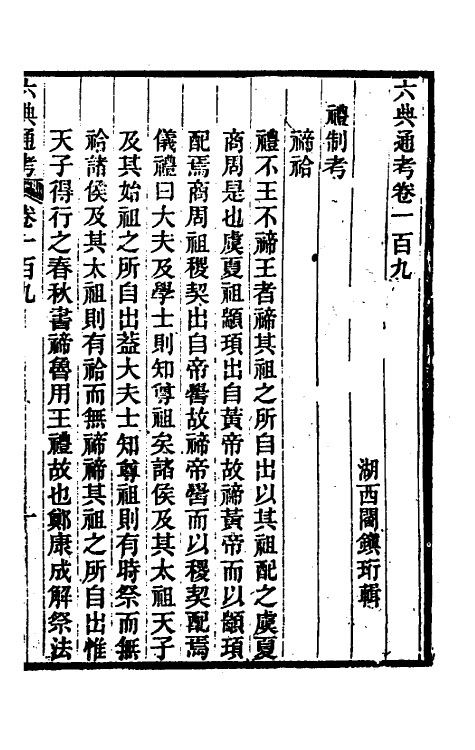 六典通考卷一百九
湖西閻鎮珩輯
禮制考
禘祫
禮不王不禘王者禘其祖之所自出以其祖配之虞夏
商周是也虞夏祖顓頊出自黃帝故禘黃帝而以顓頊
配焉商周祖稷契出自帝嚳故禘帝嚳而以稷契配焉
儀禮曰大夫及學士則知尊祖矣諸侯及其太祖天子
及其始祖之所自出蓋大夫士知尊祖則有時祭而無
祫諸侯及其太祖則有祫而無禘禘其祖之所自出惟
天子得行之春秋書禘魯用王禮故也鄭康成解祭法
六典通考 卷一百九 一